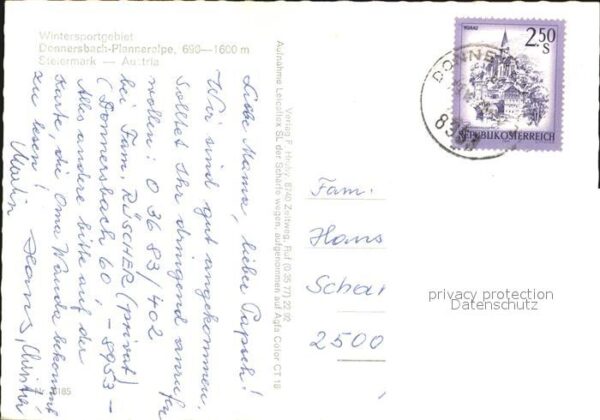 Wintersportgebiet
Donnersbach-Planneralpe, 690—1600 m
Steiermark — Austria
Liebe Mama, lieber Papsch!
Wir sind gut angekommen.
Solltet Ihr dringend anrufen
wollen: 0 36 83/402
bei Fam. RÜSCHER (privat)
(Donnersbach 60, -8953-
Alles andere bitte auf der
Karte die Oma Wanda bekommt
zu lesen!
Martin
Hans, Christa
Verlag F. 8740 Zeltweg, Ruf (0 35 77) 22 92
Aufnahme Leicaflex SL der Schärfe wegen, aufgenommen auf Agfa Color CT 18
2.50
S
REPUBLIK ÖSTERREICH
DONNE
Fam.
Hans
Schar
2500
privacy protection
Datenschutz